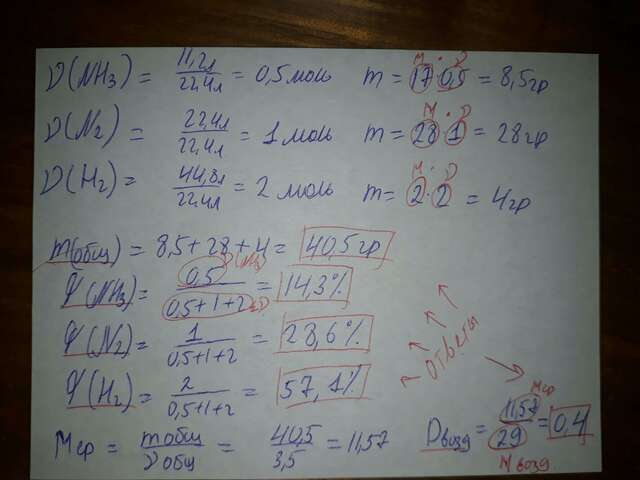 М · ν
ν(NH3) = 11,2л/22,4л = 0,5 моль m = 17 · 0,5 = 8,5гр
М · ν
ν(N2) = 22,4л/22,4л = 1 моль m = 28 · 1 = 28гр
М · ν
ν(H2) = 44,8л/22,4л = 2 моль m = 2 · 2 = 4гр
m(общ) = 8,5 + 28 + 4 = 40,5гр
φ(NH3) = 0,5/0,5+1+2 = 14,3%
φ(N2) = 1/0,5+1+2 = 28,6%
φ(H2) = 2/0,5+1+2 = 57,1%
ответы
Mср = mобщ/νобщ = 40,5/3,5 = 11,57
Mср
Dвозд = 11,57/29 = 0,4
Mвозд